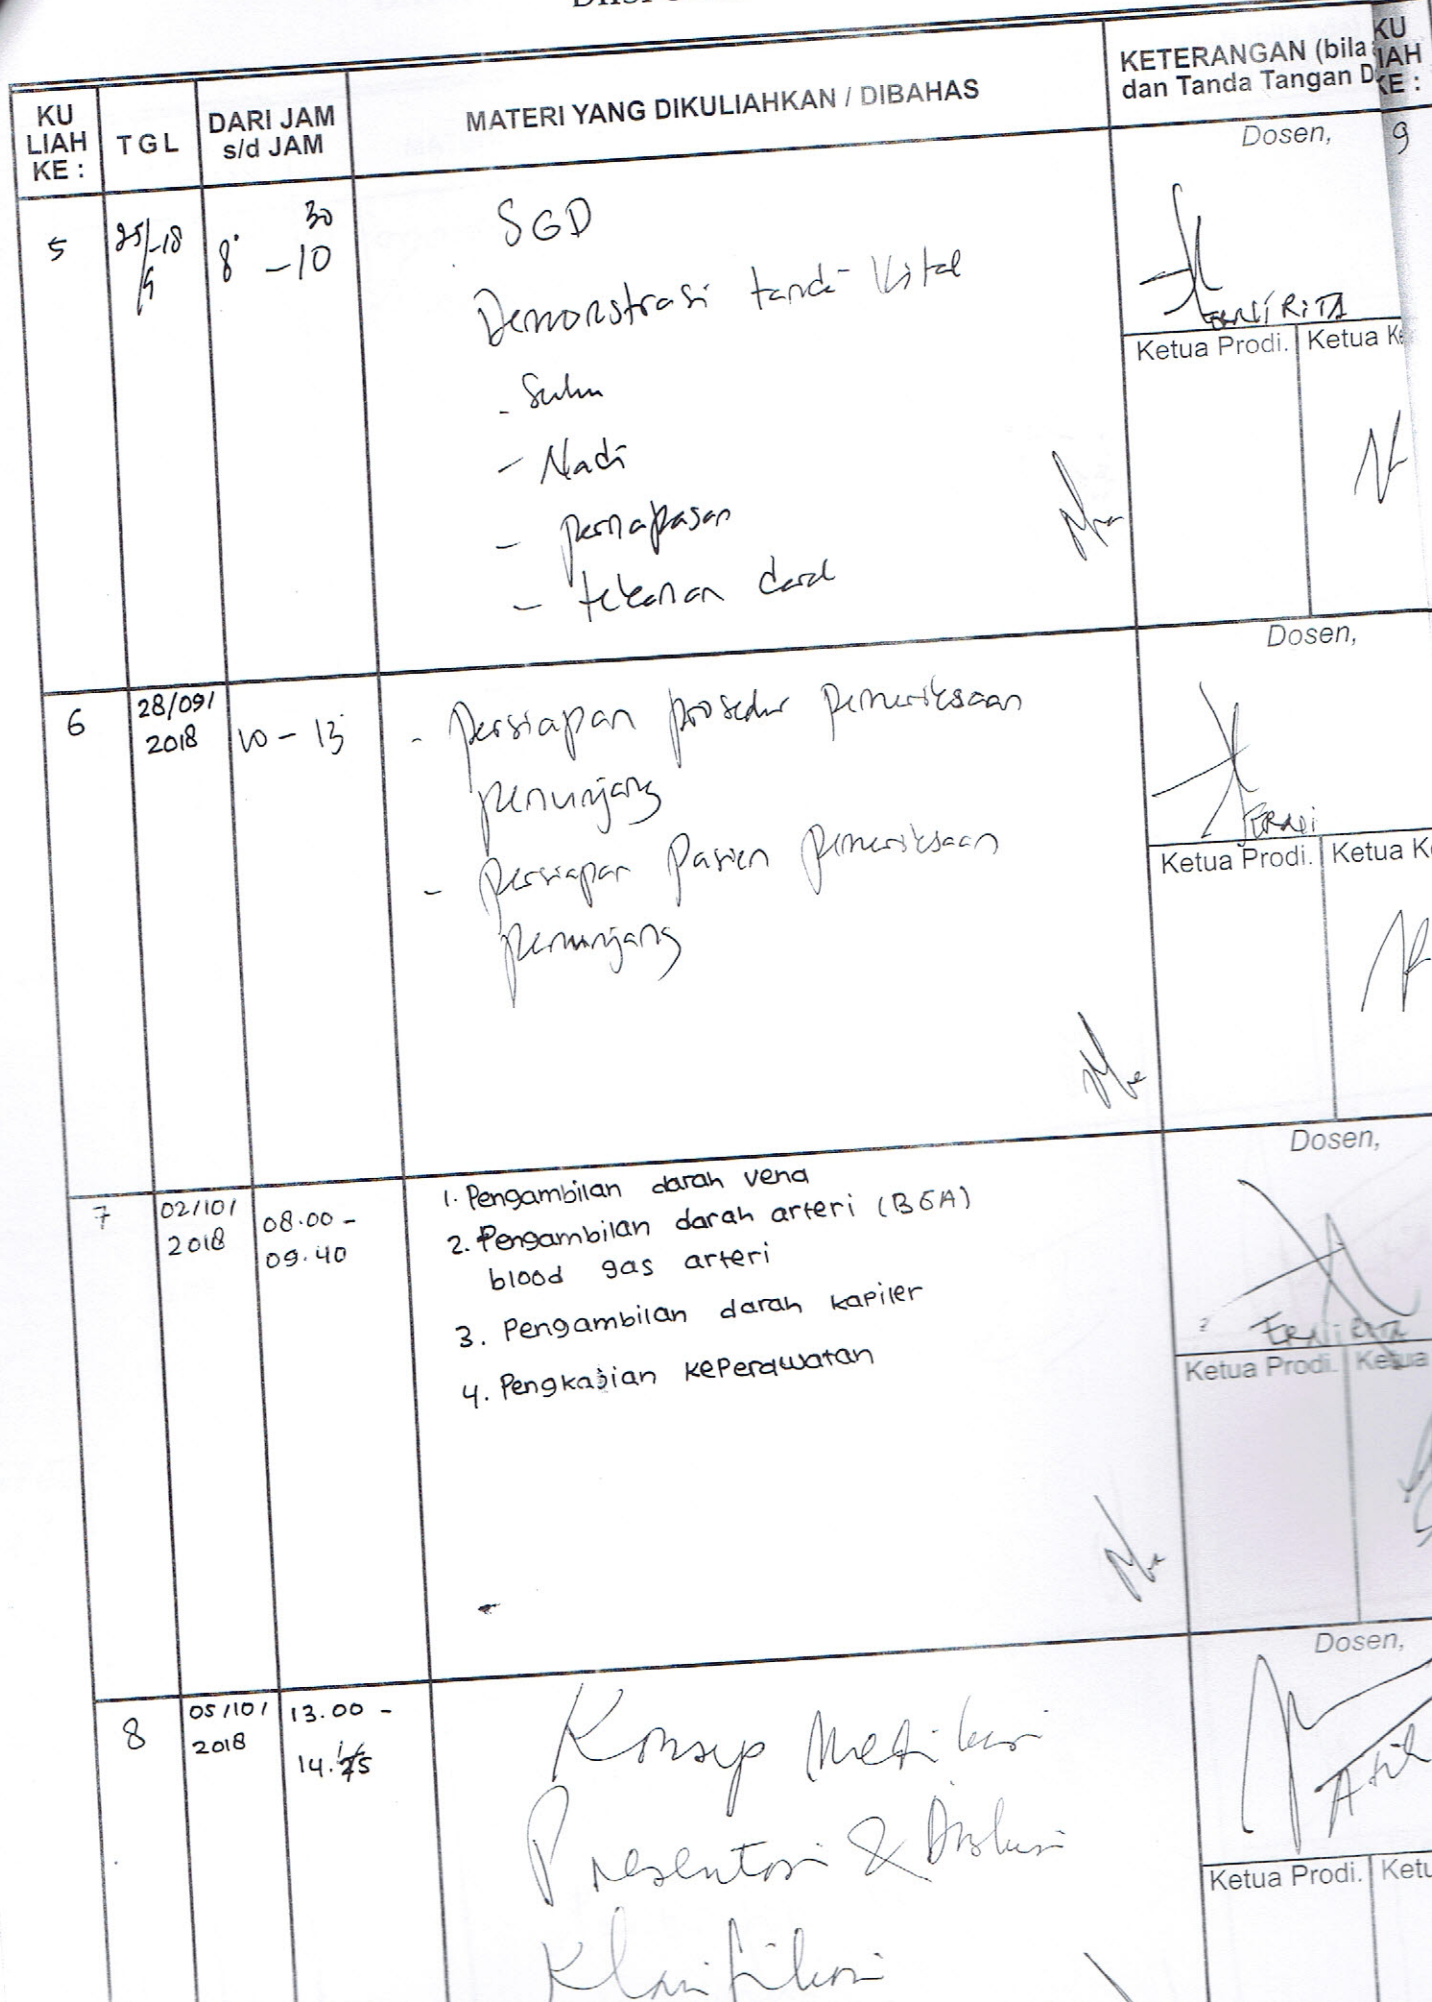 KU
LIAH
KE :
T G L
DARI JAM
s/d JAM
MATERI YANG DIKULIAHKAN / DIBAHAS
KETERANGAN (bila
dan Tanda Tangan D
KU
IAH
KE :
9
5
25/-18
/9
8 - 10 30
SGD
Demonstrasi tanda Vital
- Suhu
- Nadi
- pernapasan
- tekanan darah
Dosen,
ERNI RITA
Ketua Prodi.
Ketua K
6
28/09/
2018
10 - 13
- Persiapan prosedur pemeriksaan
penunjang
- persiapan Pasien pemeriksaan
penunjang
Dosen,
ERNI
Ketua Prodi.
Ketua K
7
02/10/
2018
08.00 -
09.40
1. Pengambilan darah vena
2. Pengambilan darah arteri (BGA)
blood gas arteri
3. Pengambilan darah kapiler
4. Pengkajian keperawatan
Dosen,
ERNI RITA
Ketua Prodi.
Ketua
8
05/10/
2018
13.00 -
Konsep Medikasi
Presentasi & Diskusi
Klarifikasi
Dosen,
Ketua Prodi.
Ketu